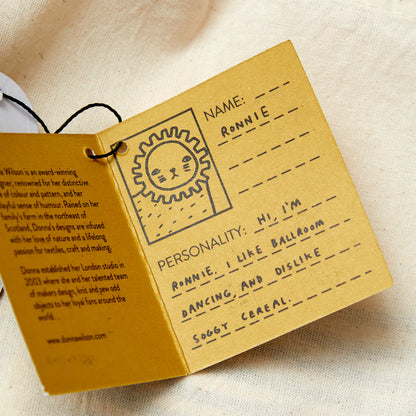 a Wilson is an award-winning
igner, renowned for her distinctive
e of colour and pattern, and her
ayful sense of humour. Raised on her
family's farm in the northeast of
Scotland, Donna's designs are infused
with her love of nature and a lifelong
passion for textiles, craft and making.
Donna established her London studio in
2003 where she and her talented team
of makers design, knit and sew odd
objects to her loyal fans around the
world...
www.donnawilson.com
NAME:
RONNIE
PERSONALITY: HI, I'M
RONNIE. I LIKE BALLROOM
DANCING, AND DISLIKE
SOGGY CEREAL.